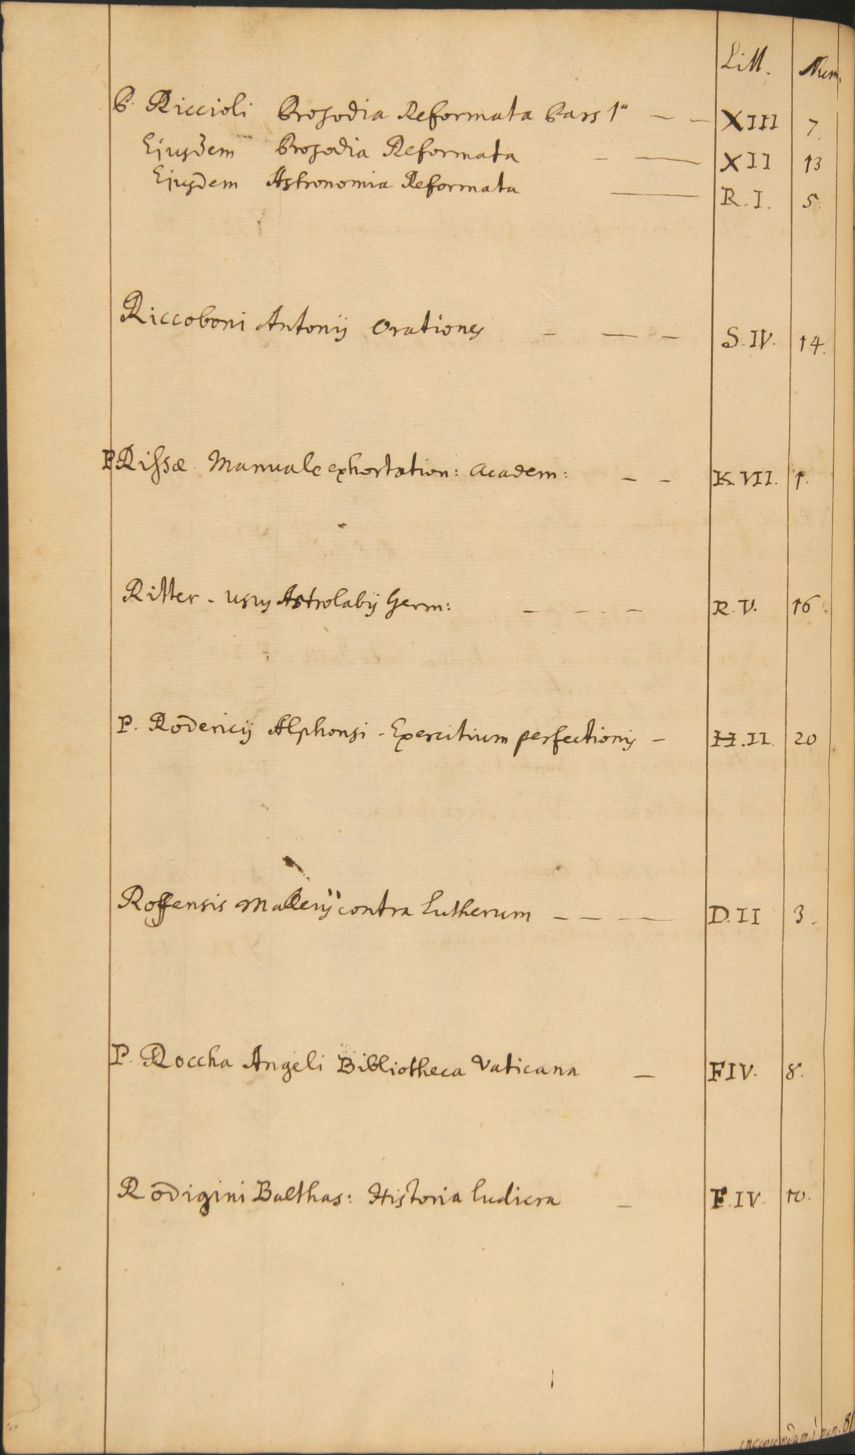 Litt. Num.
P. Riccioli Prosodia Reformata Pars 1ª — — XIII 7.
Ejusdem Prosodia Reformata - — XII 13
Ejusdem Astronomia Reformata — R. I. 5.
Riccoboni Antonij Orationes - — - S. IV. 14.
P. Rissæ Manuale exhortation: Academ: - - K VII. 1.
Ritter - usus Astrolabij Germ: - - - - R. V. 16.
P. Rodericij Alphonsi - Exercitium perfectionis - H. II. 20
Roffensis contra Lutherum - - - — D. II 3.
P. Roccha Angeli Bibliotheca Vaticana — F IV. 8.
Rodigini Balthas: Historia ludicra - F. IV. 10.